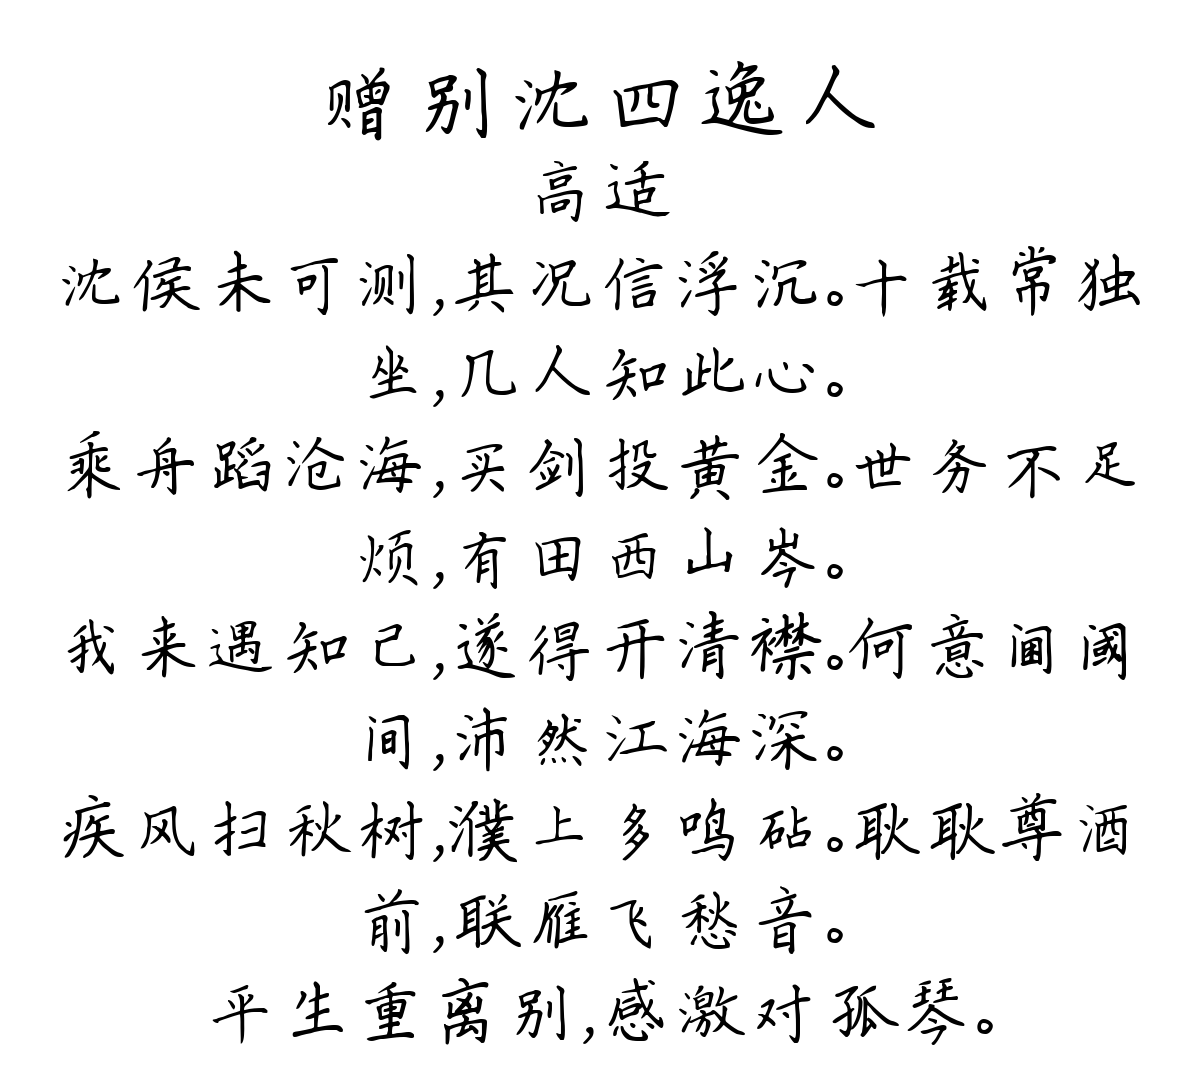 赠别沈四逸人
高适
沈侯未可测,其况信浮沉。十载常独
坐,几人知此心。
乘舟蹈沧海,买剑投黄金。世务不足
烦,有田西山岑。
我来遇知己,遂得开清襟。何意阃阈
间,沛然江海深。
疾风扫秋树,濮上多鸣砧。耿耿尊酒
前,联雁飞愁音。
平生重离别,感激对孤琴。